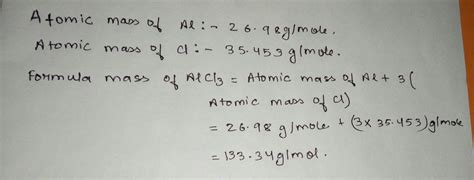 Atomic mass of Al :- 26.98g/mole.
Atomic mass of Cl :- 35.453g/mole.
Formula mass of AlCl3 = Atomic mass of Al + 3(
Atomic mass of Cl)
= 26.98 g/mole + (3x35.453)g/mole
= 133.34g/mol.